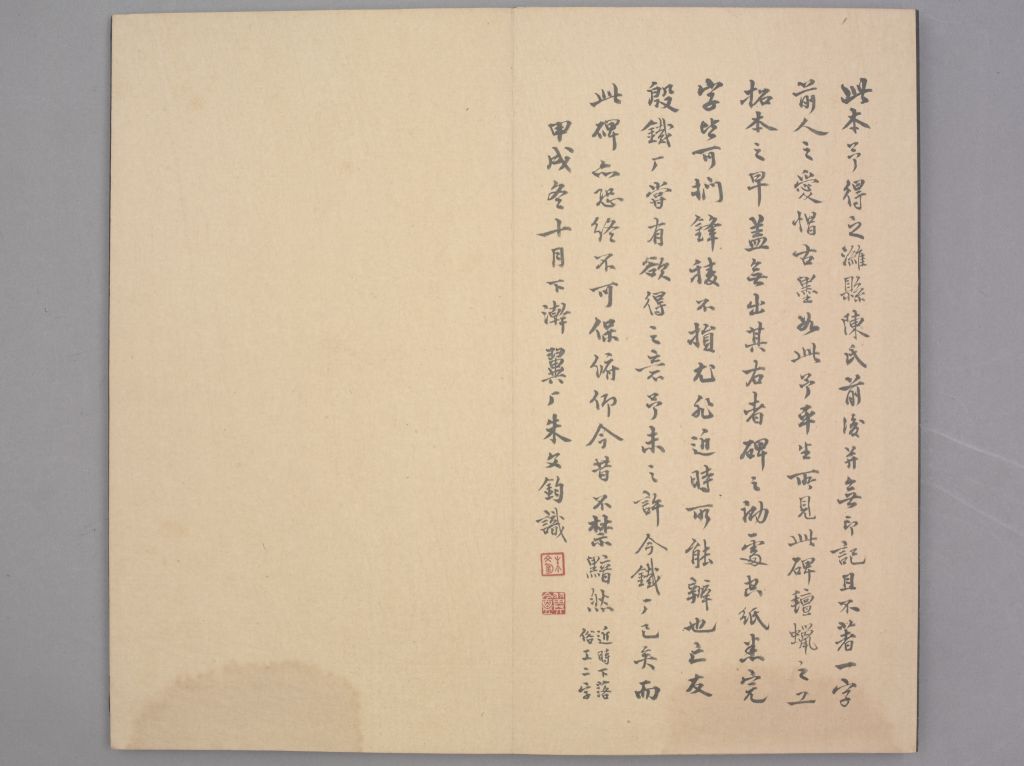 此本予得之濰縣陳氏前後并無印記且不著一字
前人之愛惜古墨如此予平生所見此碑氊蠟之工
拓本之早蓋無出其右者碑之泐處與紙素完
字皆可捫鋒稜不損尤非近時所能辨也亡友
殷鐵厂嘗有欲得之意予未之許今鐵厂已矣而
此碑亦恐終不可保俯仰今昔不禁黯然
近時下落
俗工二字
甲戌冬十月下澣翼厂朱文鈞識
朱文鈞